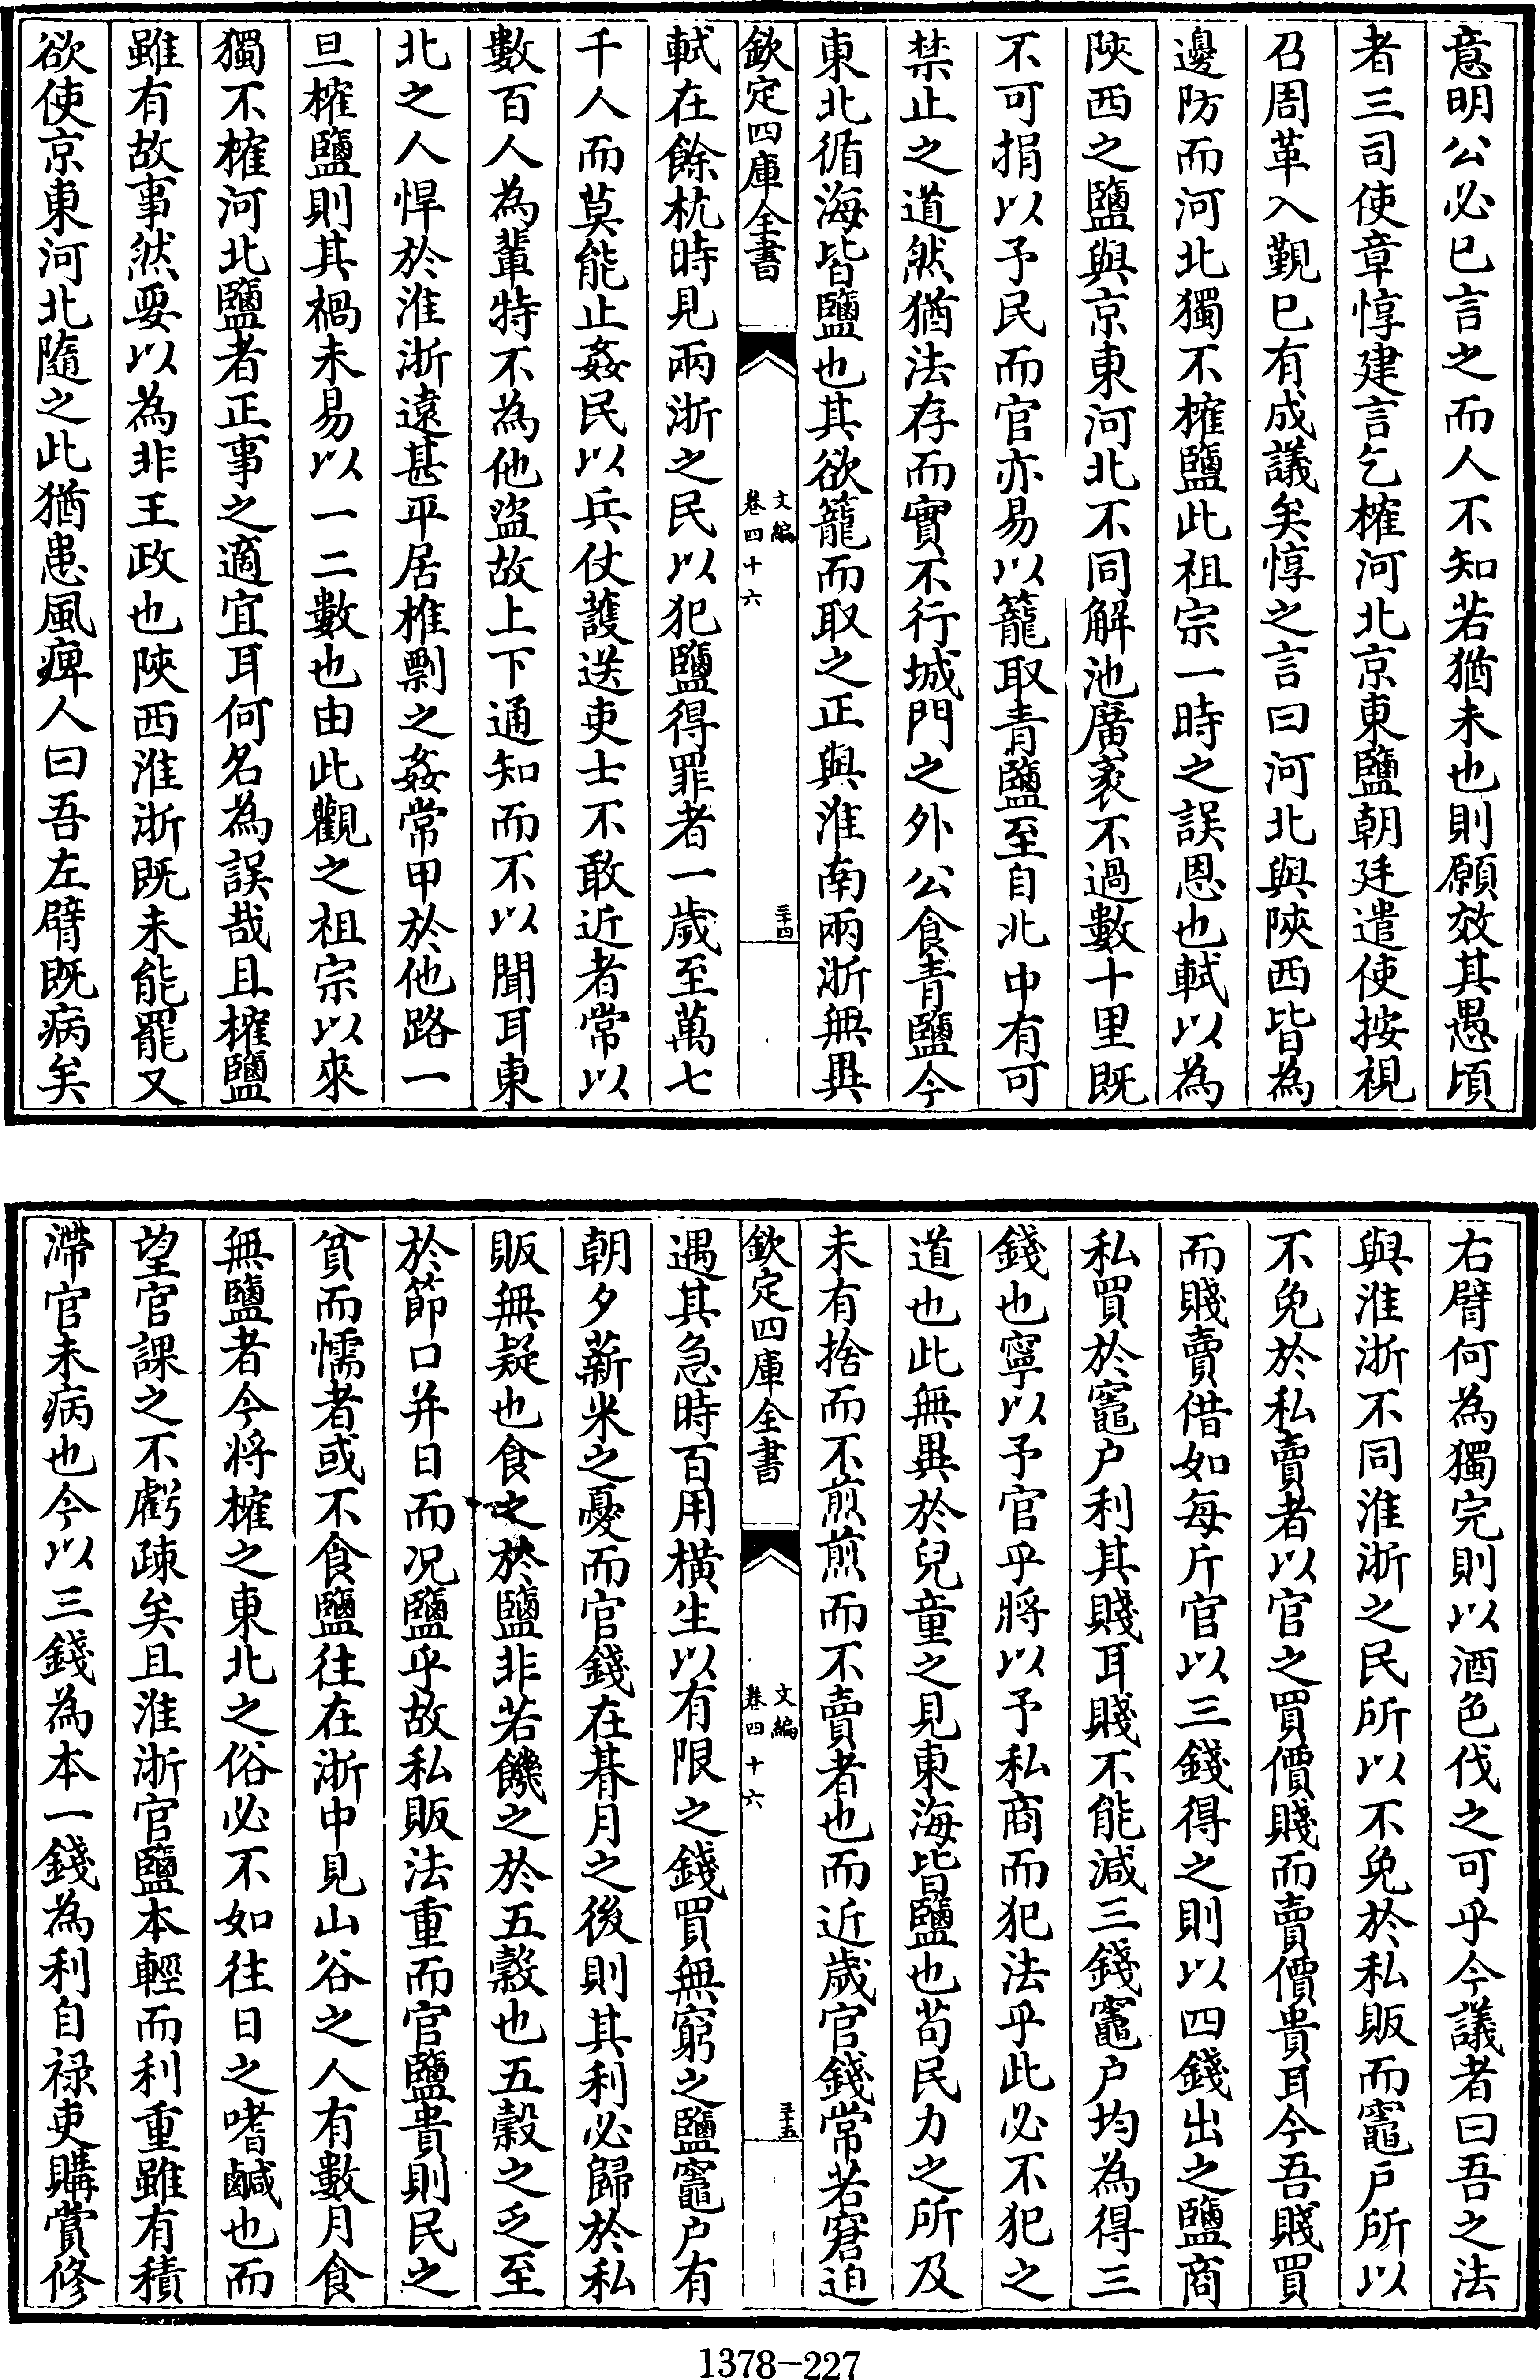 意明公必已言之而人不知若猶未也則願效其愚頃
者三司使章惇建言乞榷河北京東鹽朝廷遣使按視
召周革入覲已有成議矣惇之言曰河北與陝西皆為
邊防而河北獨不榷鹽此祖宗一時之誤恩也軾以為
陝西之鹽與京東河北不同解池廣袤不過數十里既
不可捐以予民而官亦易以籠取青鹽至自北中有可
禁止之道然猶法存而實不行城門之外公食青鹽今
東北循海皆鹽也其欲籠而取之正與淮南兩浙無異
欽定四庫全書
文編
卷四十六
三十四
軾在餘杭時見兩浙之民以犯鹽得罪者一歲至萬七
千人而莫能止姦民以兵仗護送吏士不敢近者常以
數百人為輩特不為他盜故上下通知而不以聞耳東
北之人悍於淮浙遠甚平居椎剽之姦常甲於他路一
旦榷鹽則其禍未易以一二數也由此觀之祖宗以來
獨不榷河北鹽者正事之適宜耳何名為誤哉且榷鹽
雖有故事然要以為非王政也陝西淮浙既未能罷又
欲使京東河北隨之此猶患風痺人曰吾左臂既病矣
右臂何為獨完則以酒色伐之可乎今議者曰吾之法
與淮浙不同淮浙之民所以不免於私販而竈戶所以
不免於私賣者以官之買價賤而賣價貴耳今吾賤買
而賤賣借如每斤官以三錢得之則以四錢出之鹽商
私買於竈戶利其賤耳賤不能減三錢竈戶均為得三
錢也寧以予官乎將以予私商而犯法乎此必不犯之
道也此無異於兒童之見東海皆鹽也苟民力之所及
未有捨而不煎煎而不賣者也而近歲官錢常若窘迫
欽定四庫全書
文編
卷四十六
三十五
遇其急時百用橫生以有限之錢買無窮之鹽竈戶有
朝夕薪米之憂而官錢在朞月之後則其利必歸於私
販無疑也食之於鹽非若饑之於五穀也五穀之乏至
於節口并日而况鹽乎故私販法重而官鹽貴則民之
貧而懦者或不食鹽往在浙中見山谷之人有數月食
無鹽者今將榷之東北之俗必不如往日之嗜鹹也而
望官課之不虧疎矣且淮浙官鹽本輕而利重雖有積
滯官未病也今以三錢為本一錢為利自祿吏購賞修
1378—227